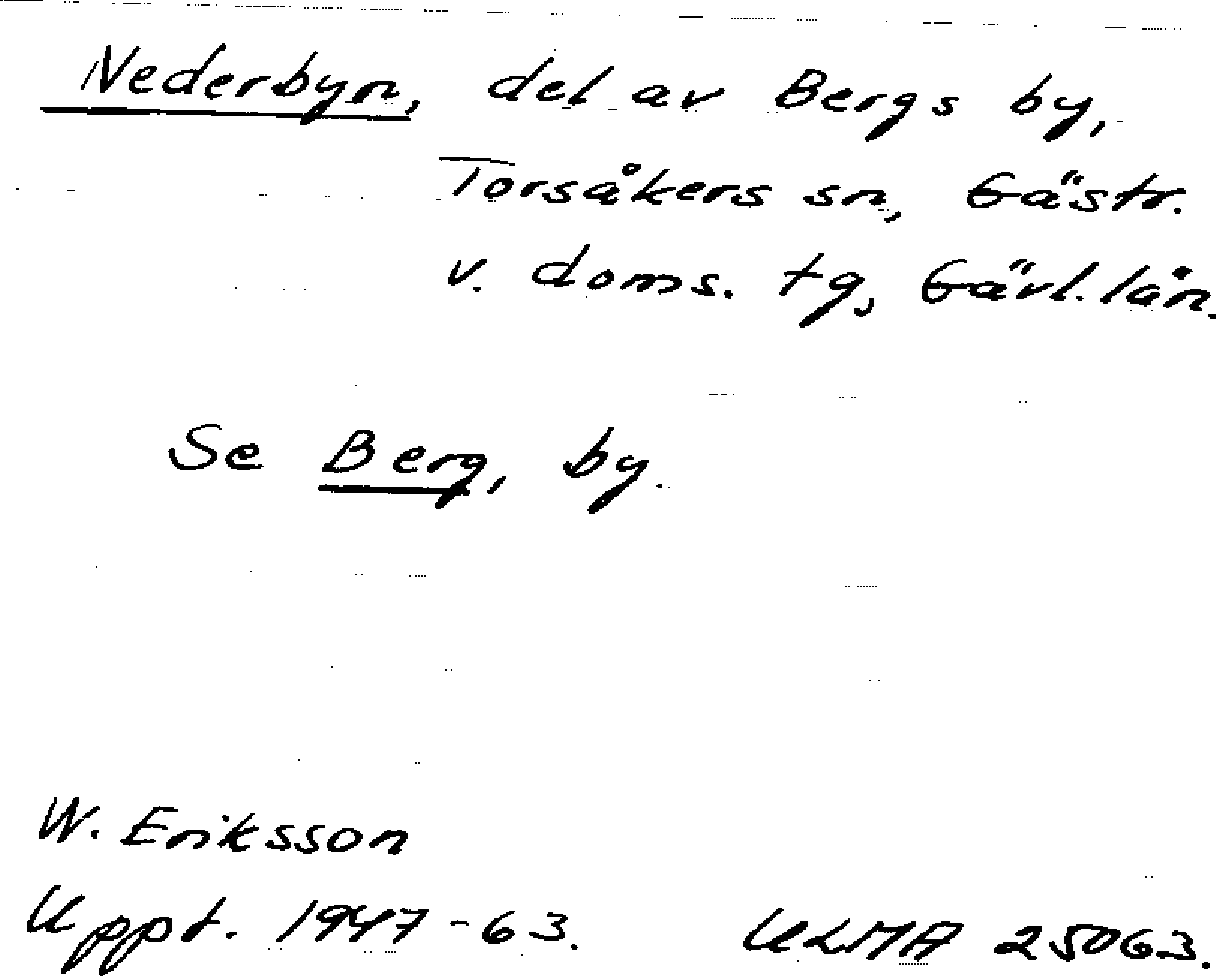 Nederbyn, del av Bergs by,
Torsåkers sn, Gästr.
v. doms. tg, Gävl. län.
Se Berg, by.
W. Eriksson
Uppt. 1947-63. ULMA 25063.